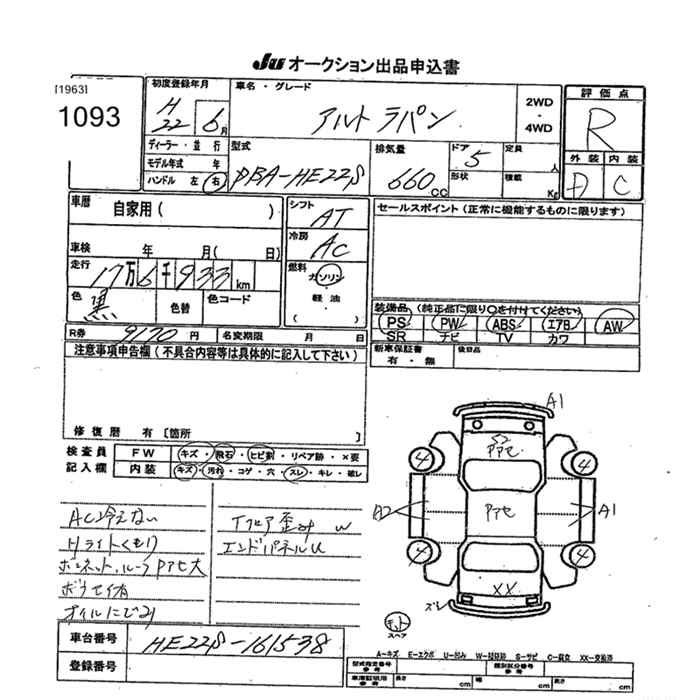 JU オークション出品申込書
[1963]
1093
初度登録年月
H22 6月
車名・グレード
アルト ラパン
2WD
・
4WD
評価点
R
外装 内装
A C
ディーラー・並行
モデル年式 年
ハンドル 左 右
型式
DBA-HE22S
排気量
660 CC
ドア 5
形状
定員 人
積載 Kg
車暦
自家用( )
シフト
AT
セールスポイント(正常に機能するものに限ります)
車検 年 月( 日)
冷房
AC
走行
17万6千933km
燃料
ガソリン
・
軽油
( )
色 黒
色替
色コード
装備品(純正品に限り○を付けてください)
PS PW ABS エアB AW
SR ナビ TV カワ
R券 9170円 名変期限 月 日
新車保証書
有・無
後日品
注意事項申告欄(不具合内容等は具体的に記入して下さい)
修復歴 有〔箇所 〕
検査員
記入欄
FW キズ・飛石・ヒビ割・リペア跡・×要
内装 キズ・汚れ・コゲ・穴・スレ・キレ・破レ
AC冷えない
Hライトくもり
ボンネット、ルーフPアセ大
ボウセイ有
オイルにじみ
Tフロア歪み W
エンドパネルU
A1
S2
Pアセ
4 4
A2 Pアセ A1
4 4
XX
ズレ
キット
スペア
車台番号 HE22S-161538
登録番号
A-キズ E-エクボ U-凹み W-補修跡 S-サビ C-腐食 XX-交換済
型式指定番号
参考
類別区分番号
参考
車庫証明
参考
長さ cm 幅 cm 高さ cm